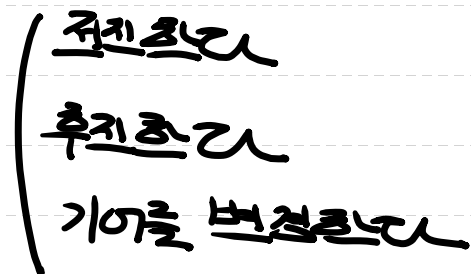 전진한다
후진한다
기어를 변경한다